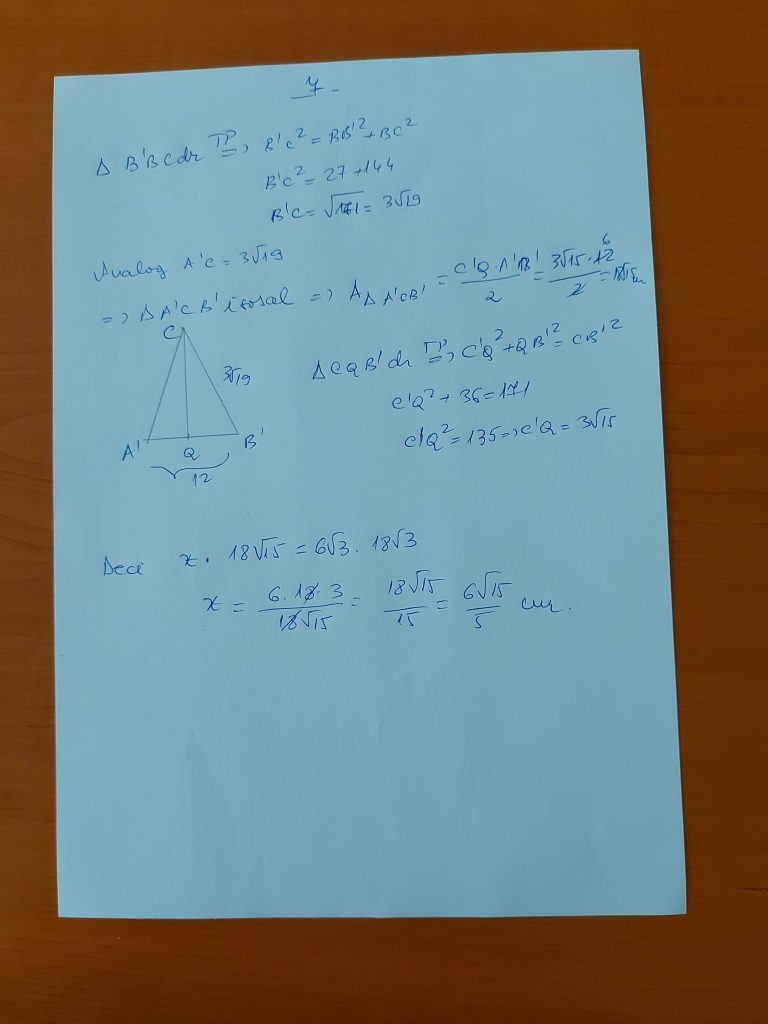 7.
Δ B'BC dr TP=> B'C² = BB'² + BC²
B'C² = 27 + 144
B'C = √171 = 3√19
Analog A'C = 3√19
=> Δ A'CB' isoscel => A Δ A'CB' = C'Q · A'B' / 2 = 3√15 · 12 6 / 2 = 18√15 cm
C
Δ CQB' dr TP=> C'Q² + QB'² = CB'²
3√19
C'Q² + 36 = 171
C'Q² = 135 => C'Q = 3√15
A' Q B'
12
Deci x · 18√15 = 6√3 · 18√3
x = 6 · 18 · 3 / 18√15 = 18√15 / 15 = 6√15 / 5 cm.